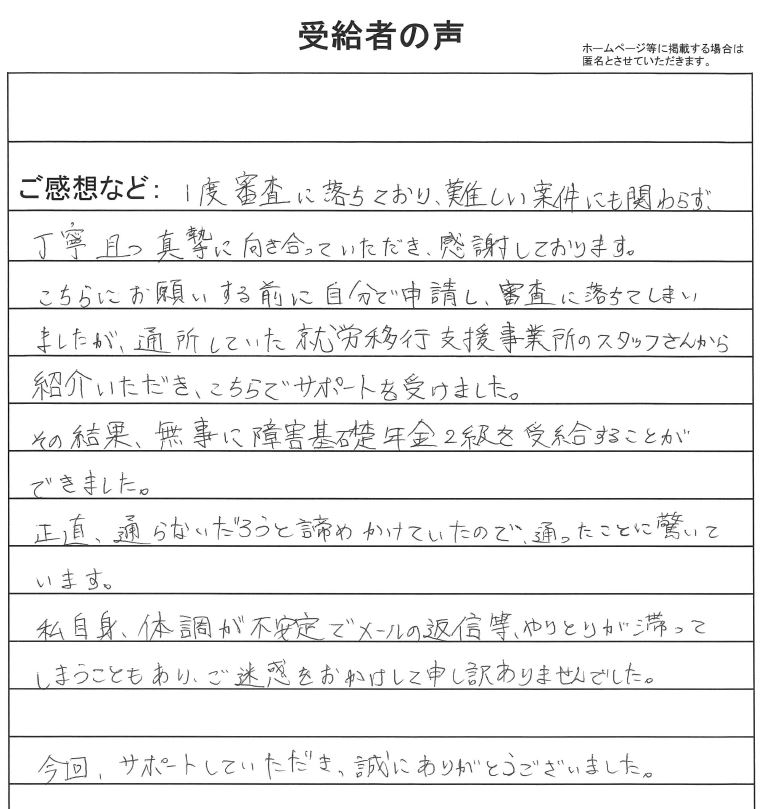 受給者の声
ホームページ等に掲載する場合は
匿名とさせていただきます。
ご感想など： 1度審査に落ちており、難しい案件にも関わらず、
丁寧且つ真摯に向き合っていただき、感謝しております。
こちらにお願いする前に自分で申請し、審査に落ちてしまい
ましたが、通所していた就労移行支援事業所のスタッフさんから
紹介いただき、こちらでサポートを受けました。
その結果、無事に障害基礎年金2級を受給することが
できました。
正直、通らないだろうと諦めかけていたので、通ったことに驚いて
います。
私自身、体調が不安定でメールの返信等、やりとりが滞って
しまうこともあり、ご迷惑をおかけして申し訳ありませんでした。
今回、サポートしていただき、誠にありがとうございました。